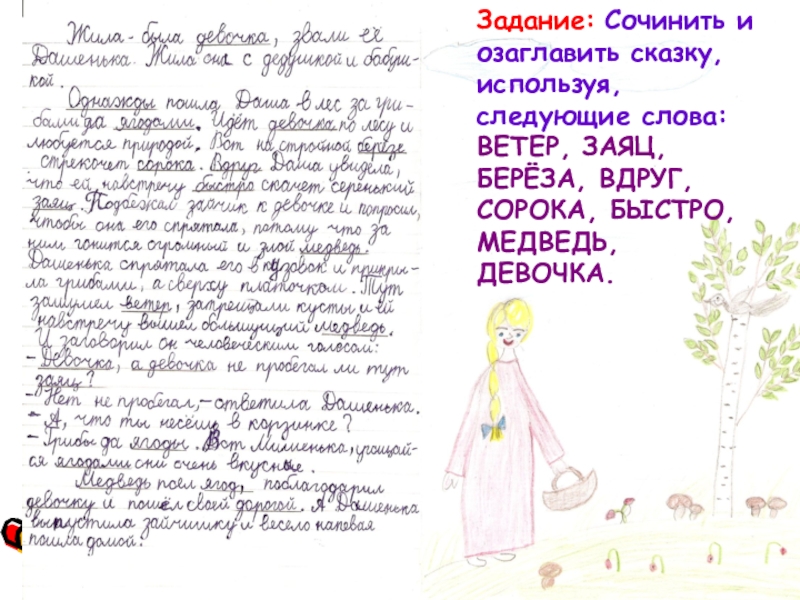 Жила-была девочка, звали её
Дашенька. Жила она с дедушкой и бабуш-
кой.
Однажды пошла Даша в лес за гри-
бами да ягодами. Идёт девочка по лесу и
любуется природой. Вот на стройной берёзе
стрекочет сорока. Вдруг Даша увидела,
что ей навстречу быстро скачет серенький
заяц. Подбежал зайчик к девочке и попросил,
чтобы она его спрятала, потому что за
ним гонится огромный и злой медведь.
Дашенька спрятала его в кузовок и прикры-
ла грибами, а сверху платочком. Тут
зашумел ветер, затрещали кусты и ей
навстречу вышел большущий медведь.
И заговорил он человеческим голосом:
- Девочка, а девочка не пробегал ли тут
заяц?
- Нет не пробегал, - ответила Дашенька.
- А, что ты несёшь в корзинке?
- Грибы да ягоды. Вот Мишенька, угощай-
ся ягодами они очень вкусные.
Медведь поел ягод, поблагодарил
девочку и пошёл своей дорогой. А Дашенька
выпустила зайчишку и весело напевая
пошла домой.
Задание: Сочинить и
озаглавить сказку,
используя,
следующие слова:
ВЕТЕР, ЗАЯЦ,
БЕРЁЗА, ВДРУГ,
СОРОКА, БЫСТРО,
МЕДВЕДЬ,
ДЕВОЧКА.